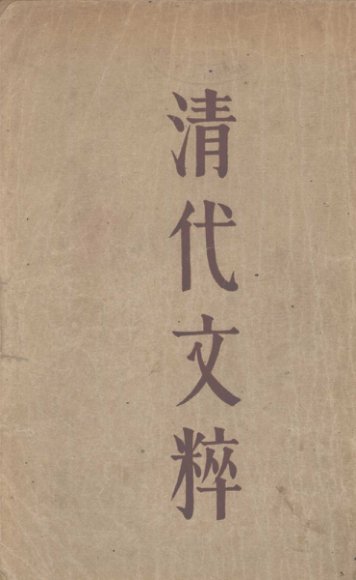 清代文粹